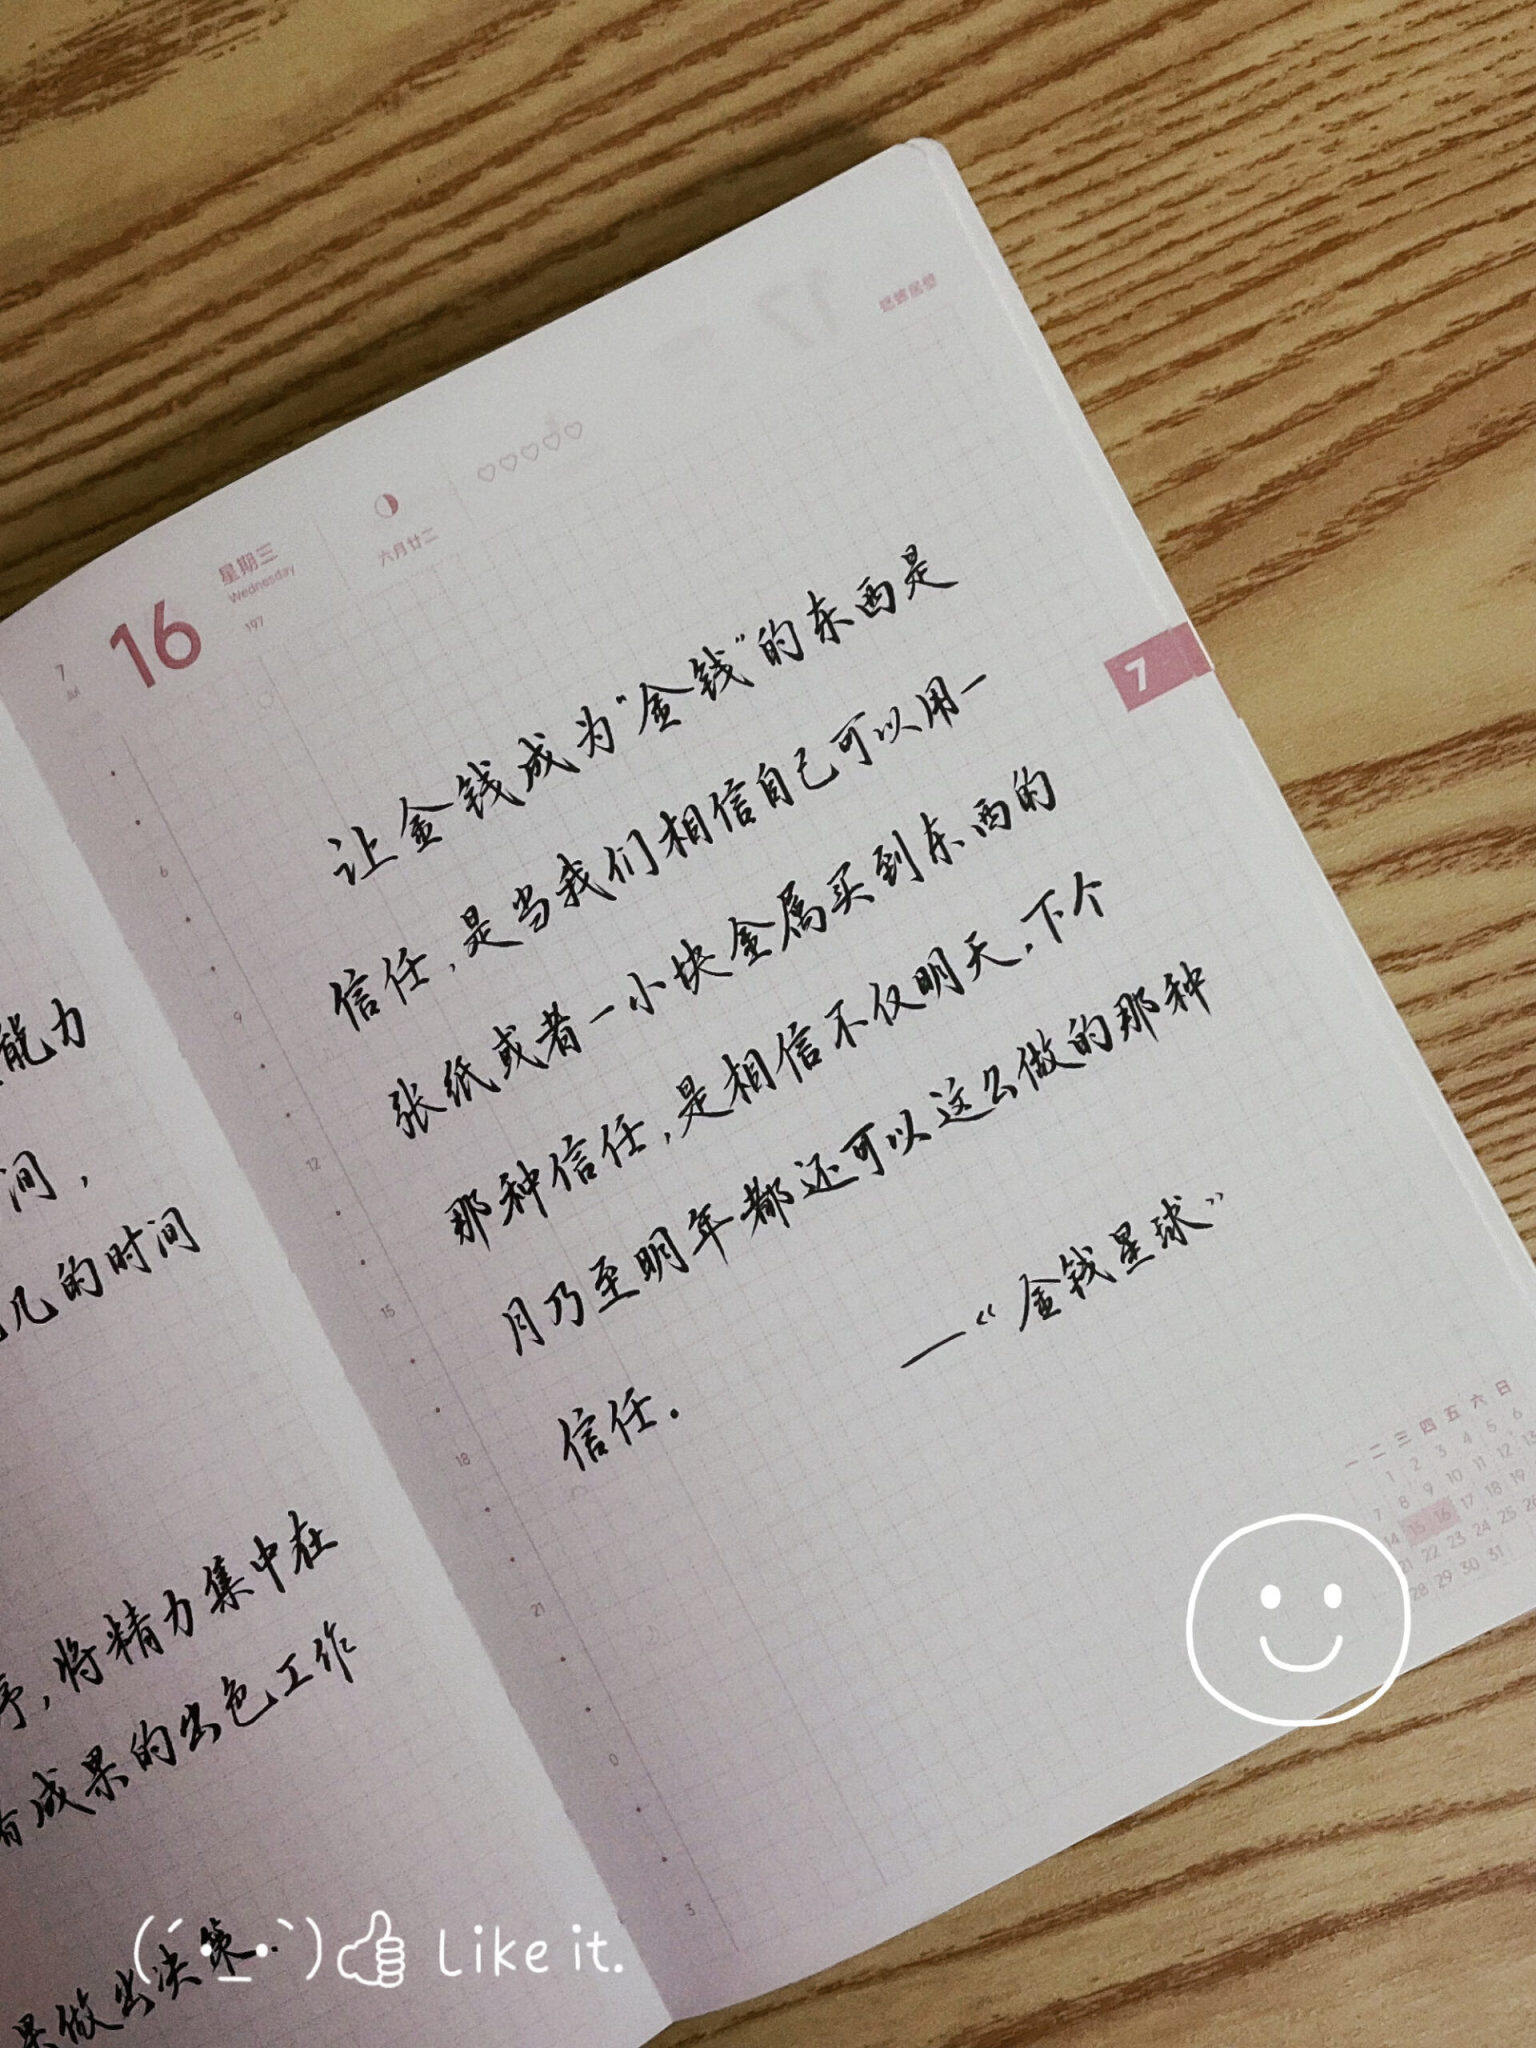 能力
间，
几的时间
将精力集中在
成果的出色工作
做出决策
7
Jul
16
星期三
Wednesday
197
六月廿二
蟋蟀居壁
7
让金钱成为“金钱”的东西是
信任，是当我们相信自己可以用一
张纸或者一小块金属买到东西的
那种信任，是相信不仅明天，下个
月乃至明年都还可以这么做的那种
信任。
—《金钱星球》
6
9
12
15
18
21
0
3
一 二 三 四 五 六 日
1 2 3 4 5 6
7 8 9 10 11 12 13
14 15 16 17 18 19
21 22 23 24 25 26
28 29 30 31
Like it.